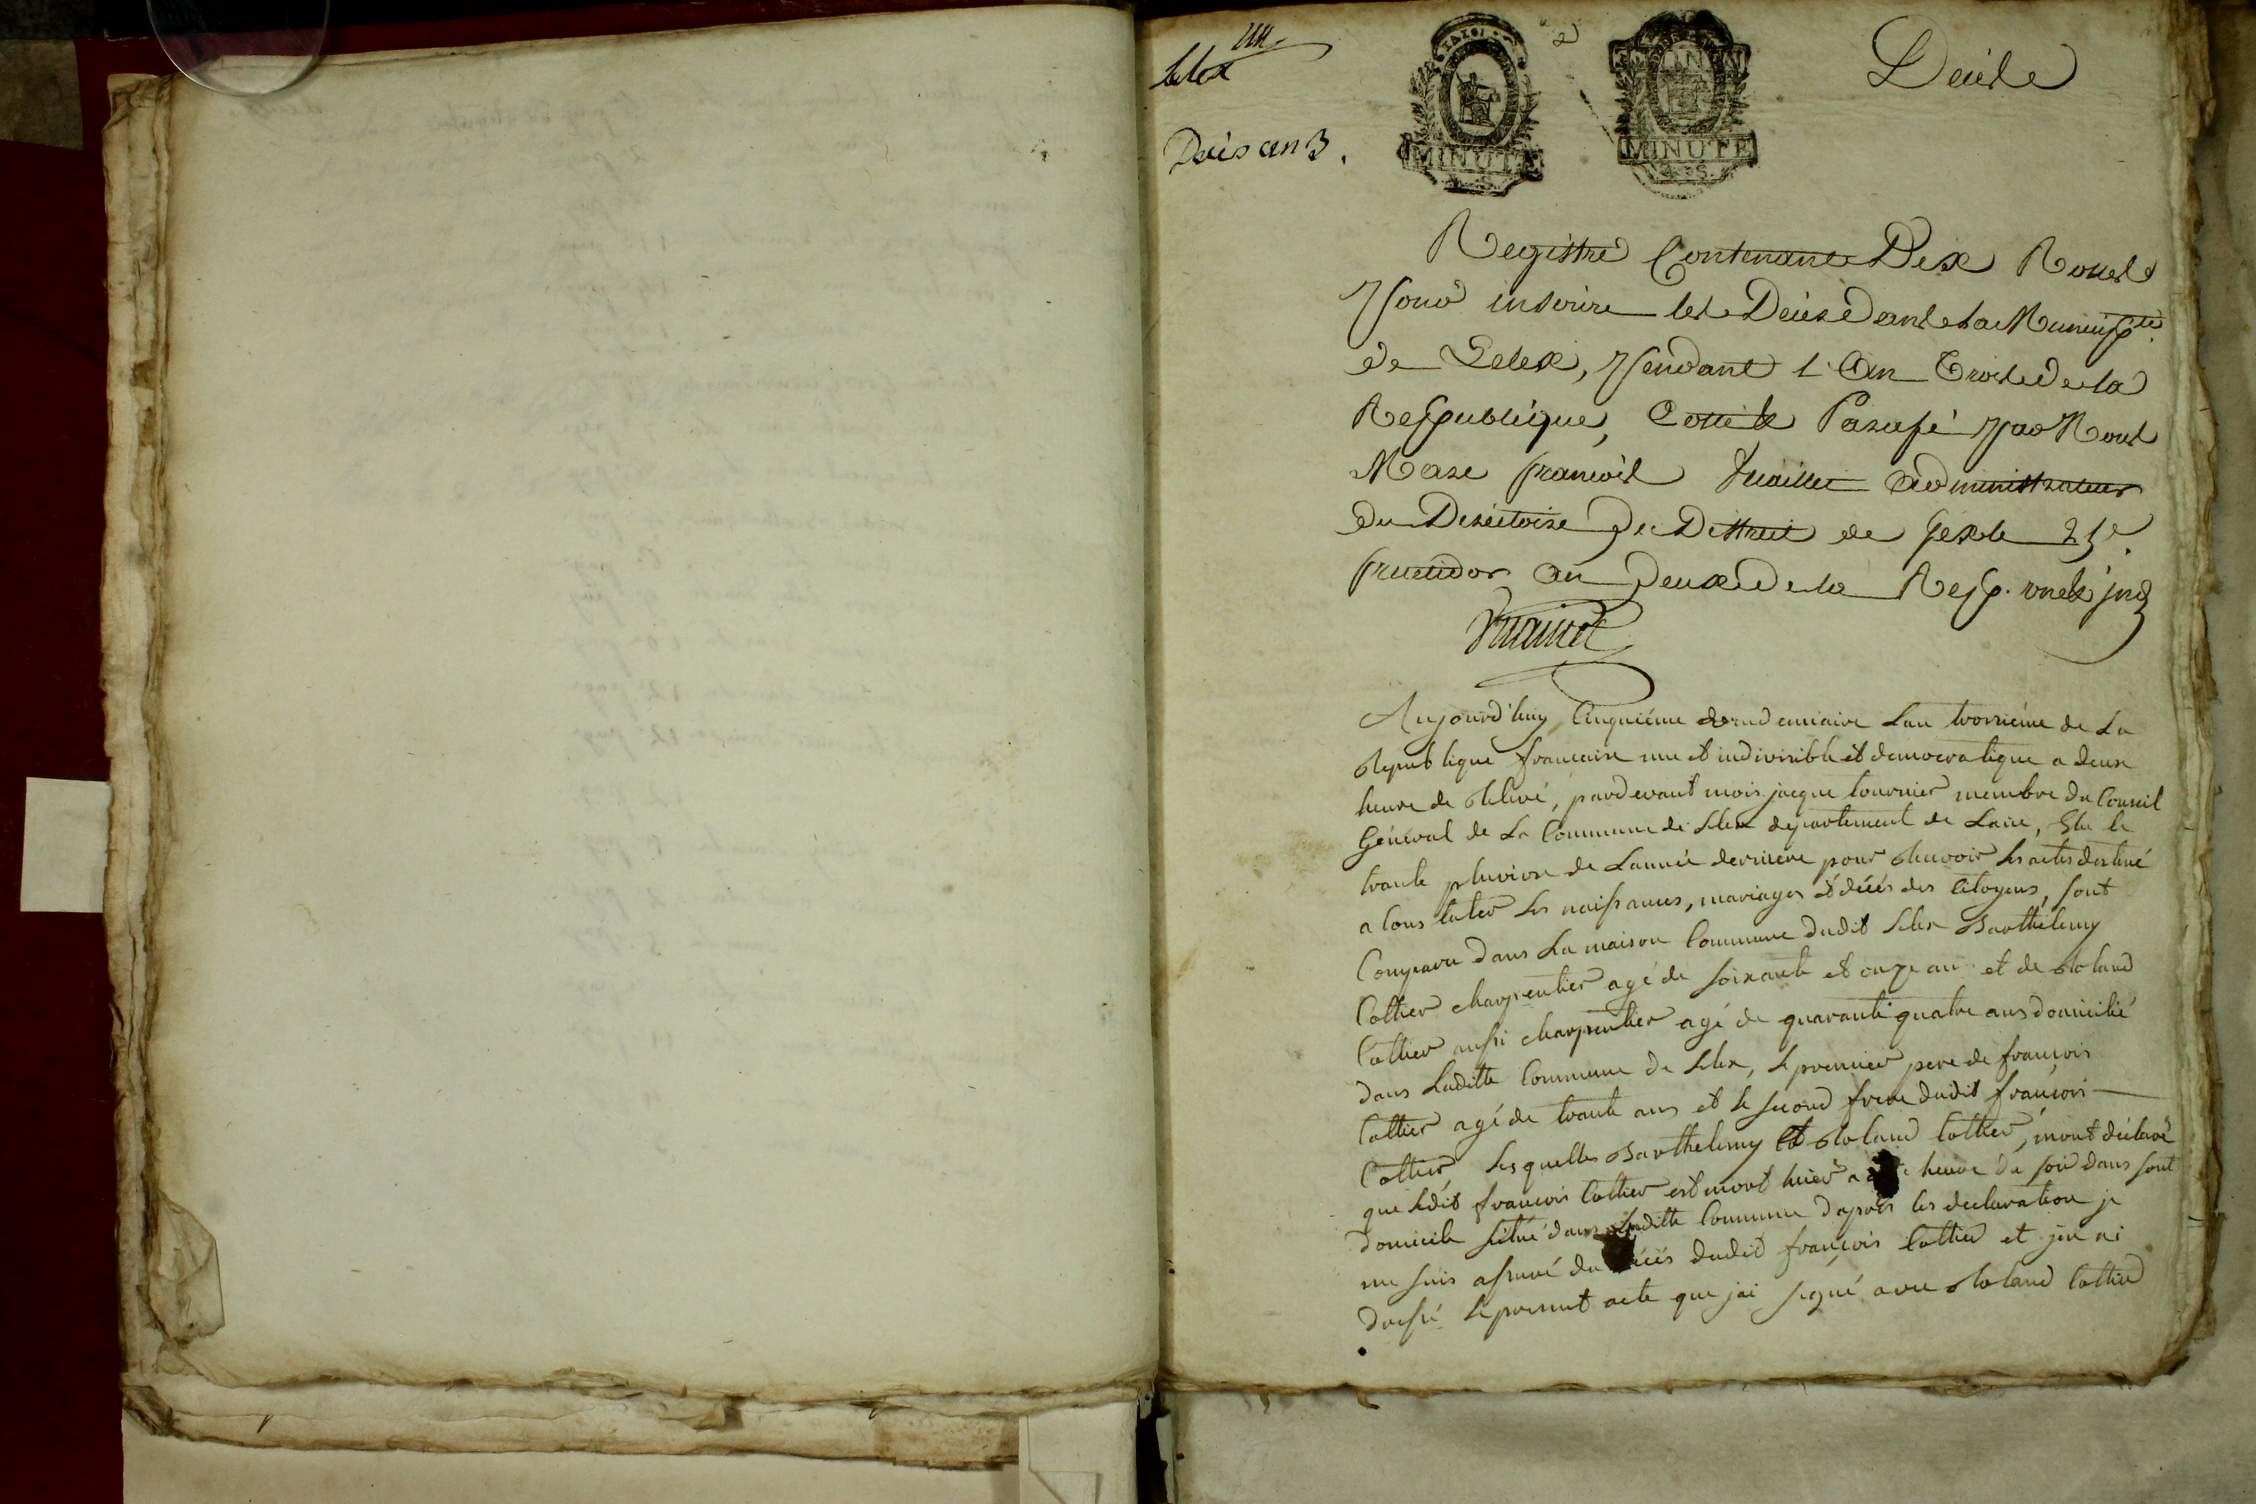 un
Lelex
Décès an 3.
MINUTE
MINUTE
Décès
Registre Contenant Dix Rolles
pour inscrire les Décès dans la Municip.té
de Lelex, pendant l'An Trois de la
Republique, Cotté & Parafé par Nous
Marc françois administrateur
du Directoire du District de Gex le 25e.
fructidor an deux de la Rep. une & ind
Aujourd'huy Cinquiéme vendemiaire Lan troisiéme de La
Republique francaise une et indivisible et democratique a deux
heure de Relevé, pardevant mois jacque tournier membre du Conseil
Géneral de La Commune de Lelex departement de Lain, Elu le
trante pluviose de Lannée derniere pour Recevoir Les actes destiné
a Constater Les naissances, mariages et décés des Citoyens, sont
Comparu dans La maison Commune dudit Lelex Barthelemy
Cottier charpentier agé de soixante et onze an et de Roland
Cottier aussi charpentier agé de quarante quatre ans domicilié
dans Laditte Commune de Lelex, Le premier pere de francois
Cottier agé de trante ans et le second frere dudit francois
Cottier, Lesquelles Barthelemy et Roland Cottier, mont déclaré
que Ledit francois Cottier est mort hier a heure du soir dans sont
domicile situé dans Laditte Commune dapres les declaration je
me suis assuré du décés dudit françois Cottier et jen ai
dressé Le present acte que jai signé avec Roland Cottier